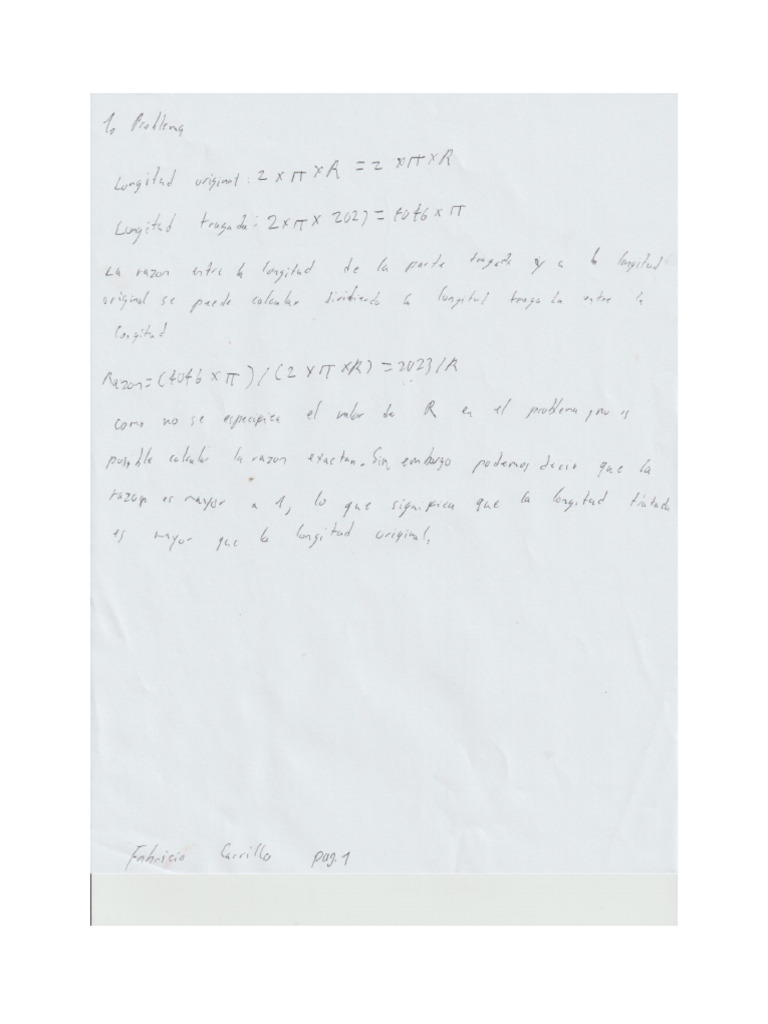 1o Problema
Longitud original: 2 × π × R = 2 × π × R
Longitud tragada: 2 × π × 2023 = 4046 × π
La razon entre la longitud de la parte tragada y a la longitud
original se puede calcular dividiendo la longitud tragada entre la
longitud
Razon = (4046 × π) / (2 × π × R) = 2023 / R
como no se especifica el valor de R en el problema, no es
posible calcular la razon exactan. Sin embargo podemos decir que la
razon es mayor a 1, lo que significa que la longitud tratada
es mayor que la longitud original.
Fabricio Carrillo pag. 1